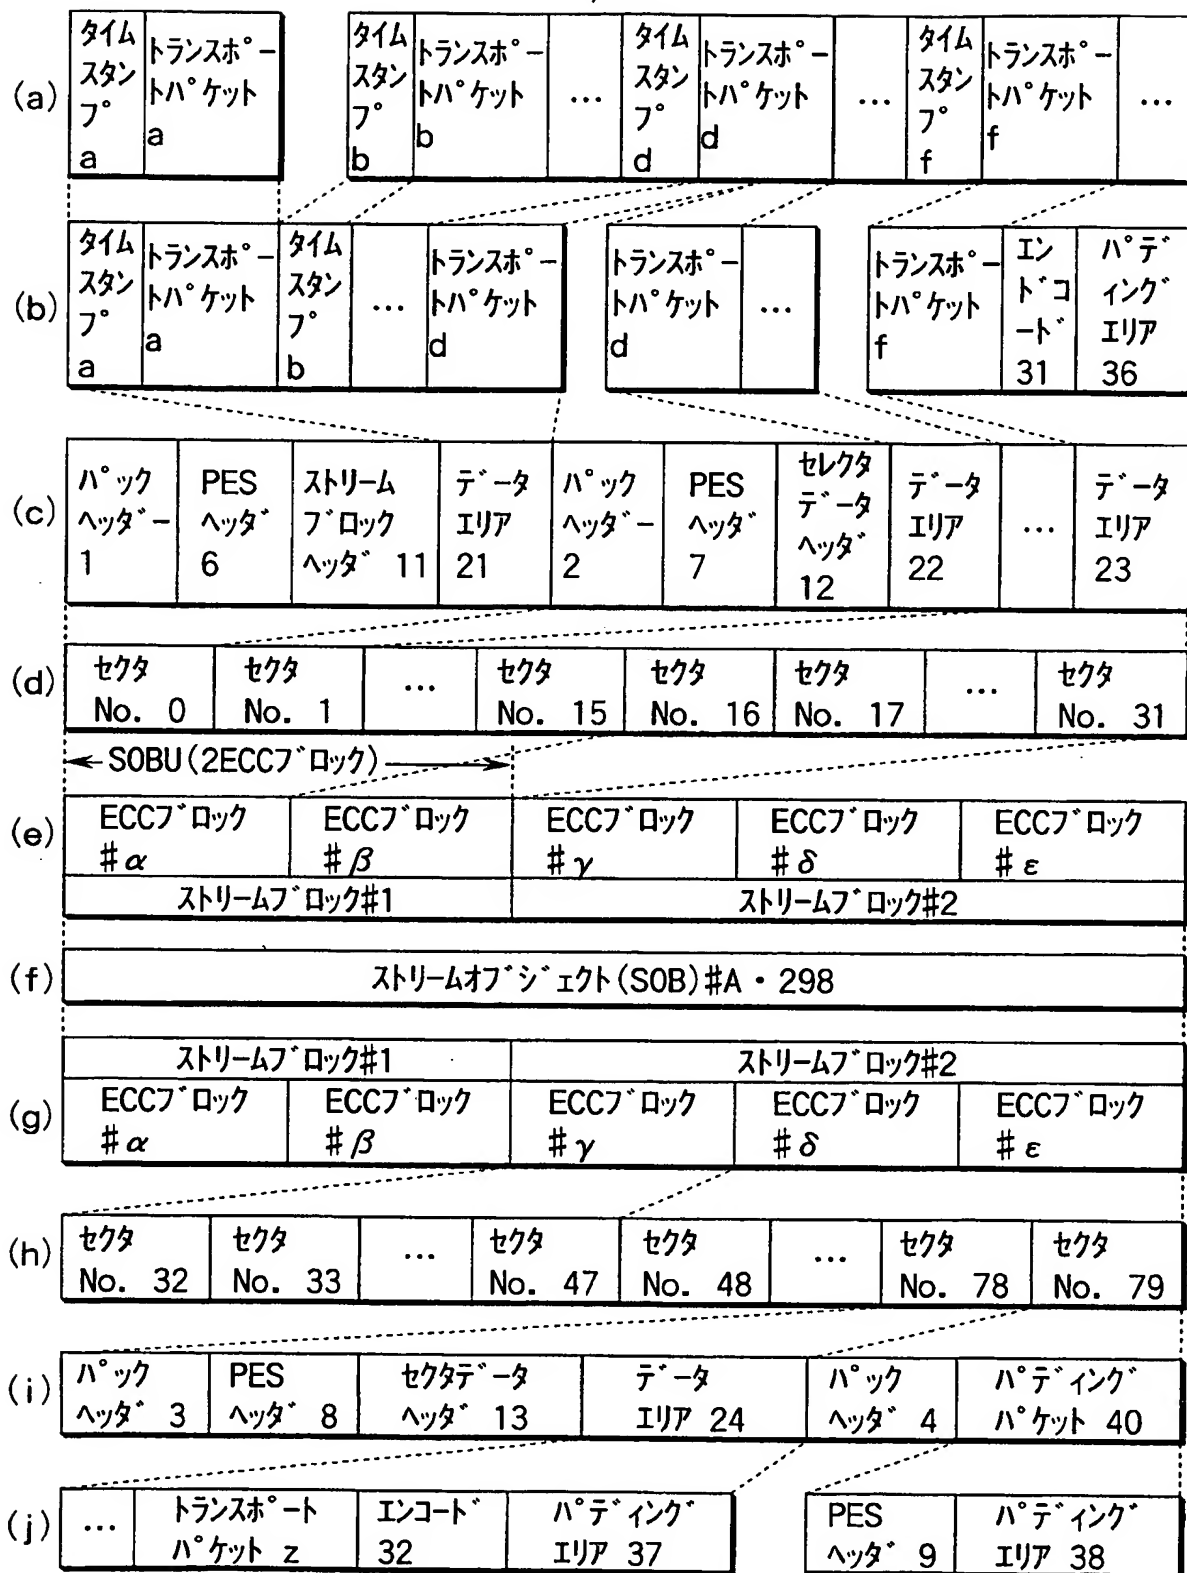 (a)
タイム
スタン
プ
a
トランスポー
トパケット
a
タイム
スタン
プ
b
トランスポー
トパケット
b
...
タイム
スタン
プ
d
トランスポー
トパケット
d
...
タイム
スタン
プ
f
トランスポー
トパケット
f
...
(b)
タイム
スタン
プ
a
トランスポー
トパケット
a
タイム
スタン
プ
b
...
トランスポー
トパケット
d
トランスポー
トパケット
d
...
トランスポー
トパケット
f
エン
ドコ
ード
31
パデ
ィング
エリア
36
(c)
パック
ヘッダー
1
PES
ヘッダ
6
ストリーム
ブロック
ヘッダ 11
データ
エリア
21
パック
ヘッダー
2
PES
ヘッダ
7
セレクタ
データ
ヘッダ
12
データ
エリア
22
...
データ
エリア
23
(d)
セクタ
No. 0
セクタ
No. 1
...
セクタ
No. 15
セクタ
No. 16
セクタ
No. 17
...
セクタ
No. 31
←SOBU(2ECCブロック)→
(e)
ECCブロック
#α
ECCブロック
#β
ECCブロック
#γ
ECCブロック
#δ
ECCブロック
#ε
ストリームブロック#1
ストリームブロック#2
(f)
ストリームオブジェクト(SOB)#A・298
ストリームブロック#1
ストリームブロック#2
(g)
ECCブロック
#α
ECCブロック
#β
ECCブロック
#γ
ECCブロック
#δ
ECCブロック
#ε
(h)
セクタ
No. 32
セクタ
No. 33
...
セクタ
No. 47
セクタ
No. 48
...
セクタ
No. 78
セクタ
No. 79
(i)
パック
ヘッダ 3
PES
ヘッダ 8
セクタデータ
ヘッダ 13
データ
エリア 24
パック
ヘッダ 4
パディング
パケット 40
(j)
...
トランスポート
パケット z
エンコード
32
パディング
エリア 37
PES
ヘッダ 9
パディング
エリア 38